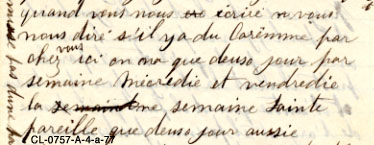 quand vous nous ecrire n. vous
nous diré s'il ya du Carimme par
chez vous ici on na que deuso jour par
semaine micredie et vendredie
la semaine semaine sainte
pareille que deuso jour aussie
CL-0757-A-4-a-77